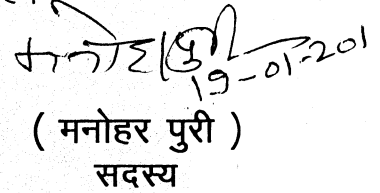 मनोहर पुरी
19-01-201
( मनोहर पुरी )
सदस्य